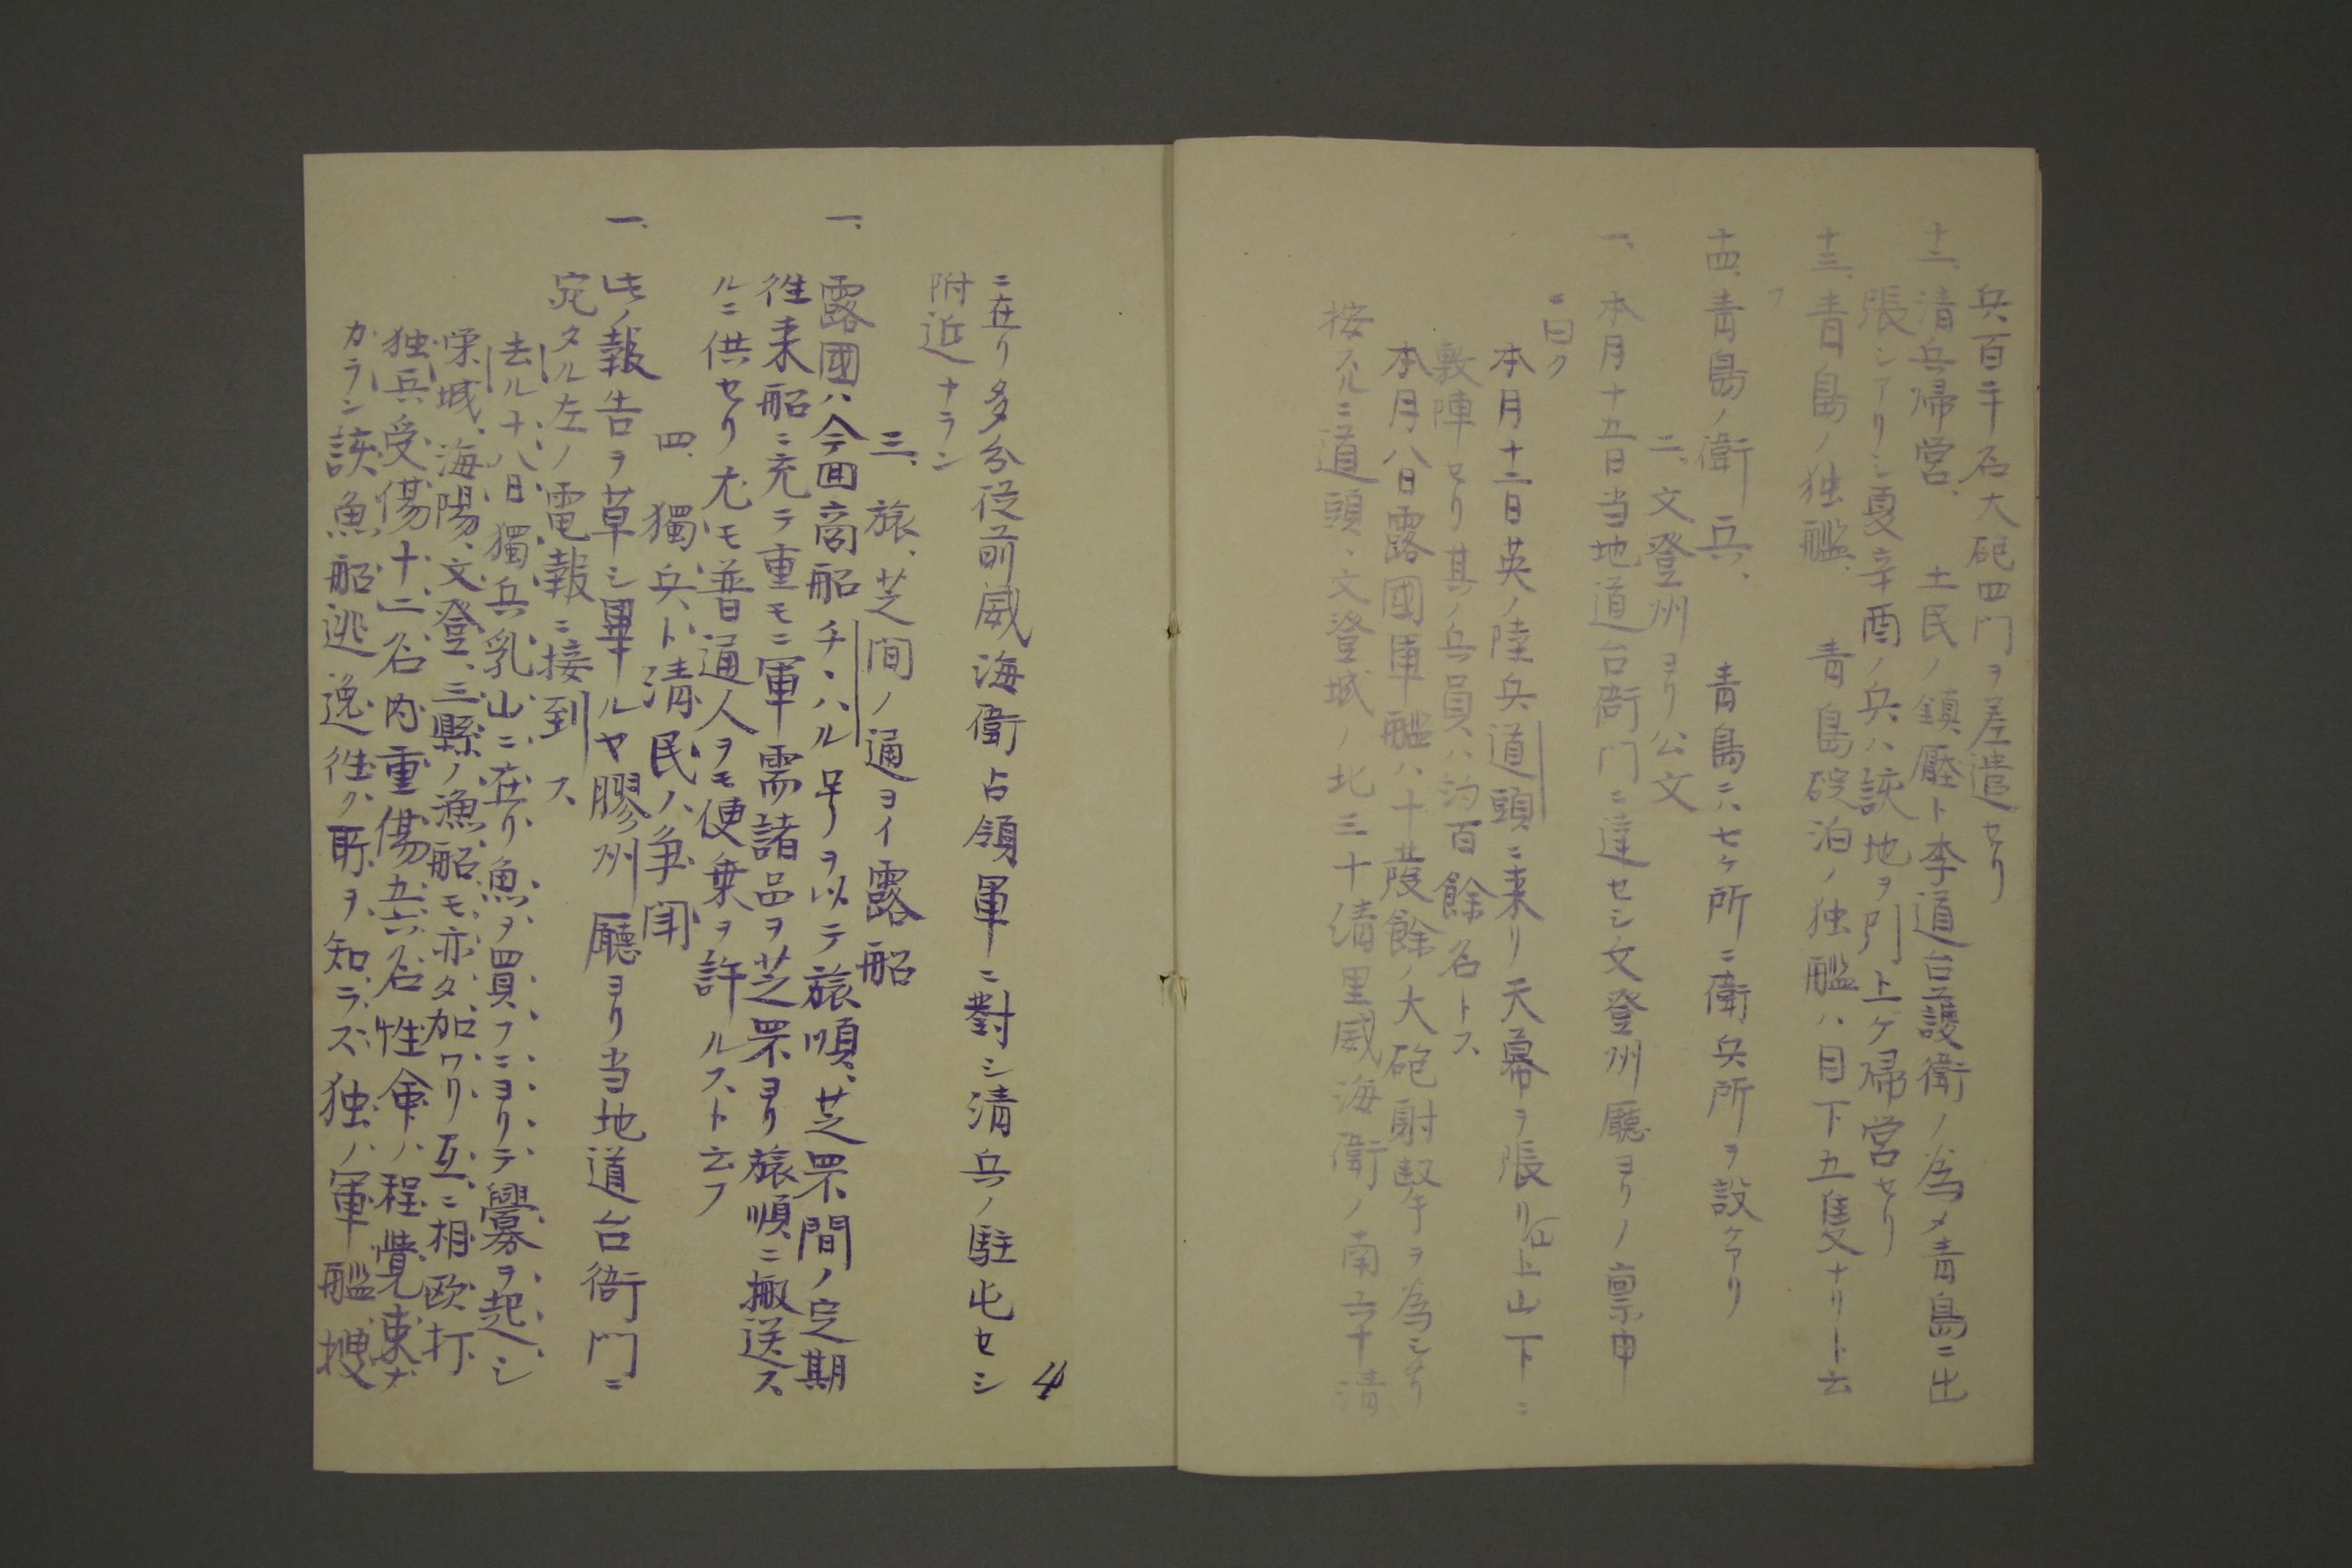 兵百二十名大砲四門ヲ差遣セリ
十二、清兵帰営、土民ノ鎮壓ト李道台護衛ノ為メ青島ニ出
張シアリシ夏辛酉ノ兵ハ該地ヲ引上ゲ帰営セリ
十三、青島ノ独艦、青島碇泊ノ独艦ハ目下五隻ナリト云
フ
十四、青島ノ衛兵、青島ニハ七ケ所ニ衛兵所ヲ設ケアリ
二、文登州ヨリ公文
一、本月十五日当地道台衙門ニ達セシ文登州廳ヨリノ禀申
ニ曰ク
本月十二日英ノ陸兵道頭ニ来リ天幕ヲ張リ山下ニ
敷陣セリ其ノ兵員ハ約百餘名トス
本月八日露國軍艦ハ十発餘ノ大砲射撃ヲ為シタリ
按スルニ道頭、文登城ノ北三十清里威海衛ノ南五十清
ニ在リ多分従前威海衛占領軍ニ對シ清兵ノ駐屯セシ
附近ナラン
三、旅、芝間ノ通ヨイ露船
一、露國ハ今回商船チ、ハル号ヲ以テ旅順、芝罘間ノ定期
往来船ニ充テ重モニ軍需諸品ヲ芝罘ヨリ旅順ニ搬送ス
ルニ供セリ尤モ普通人ヲモ便乗ヲ許ルスト云フ
四、獨兵ト清民ノ争闘
一、此ノ報告ヲ草シ畢ルヤ膠州廳ヨリ当地道台衙門ニ
宛タル左ノ電報ニ接到ス
去ル十八日獨兵乳山ニ在リ魚ヲ買フニヨリテ釁ヲ起シ
栄城、海陽、文登、三縣ノ漁船モ亦タ加ワリ互ニ相欧打
独兵受傷十二名内重傷五六名性命ハ程覺束ナ
カラン該魚船逃逸往ク所ヲ知ラズ独ノ軍艦捜
4